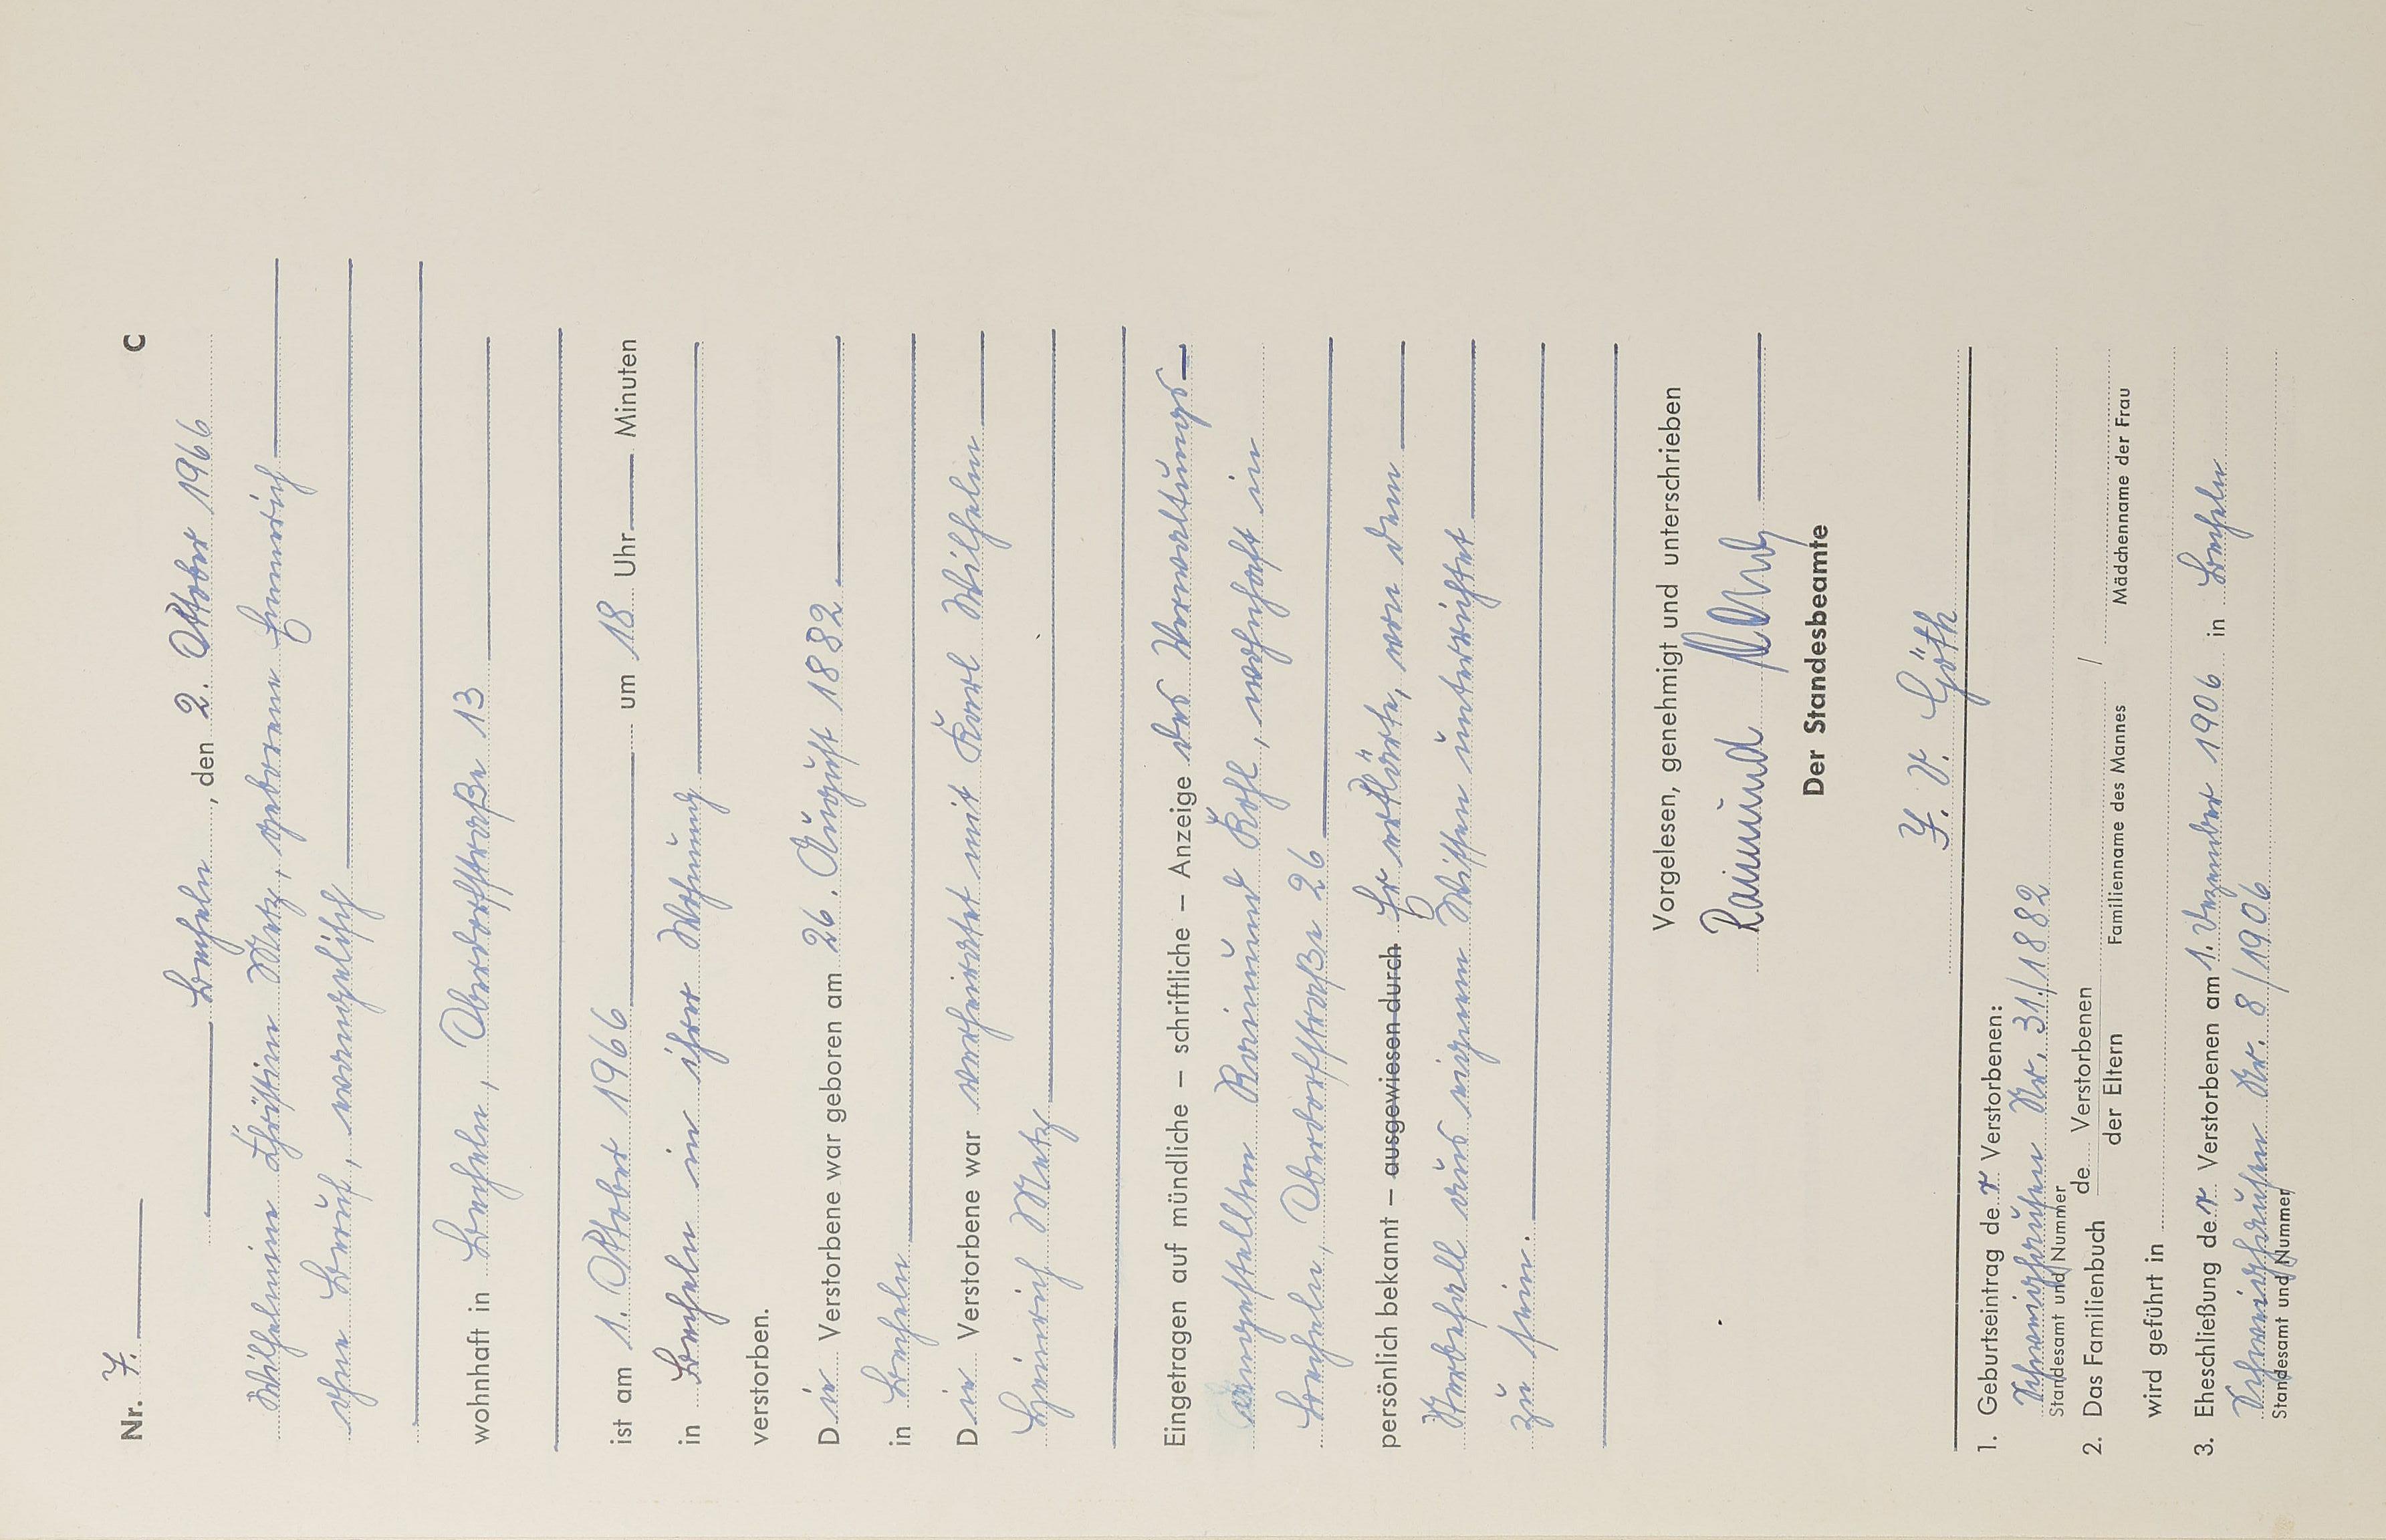 Nr. 7. C
Becheln, den 2. Oktober 1966
Wilhelmine Christine Metz, geborene Emmerich
ohne Beruf, evangelisch
wohnhaft in Becheln, Oberdorfstraße 13
ist am 1. Oktober 1966 um 18 Uhr Minuten
in Becheln in ihrer Wohnung
verstorben.
Die Verstorbene war geboren am 26. August 1882
in Becheln
Die Verstorbene war verheiratet mit Karl Wilhelm
Heinrich Metz
Eingetragen auf mündliche – schriftliche – Anzeige des Verwaltungs-
angestellten Raimund Kohl, wohnhaft in
Becheln, Oberdorfstraße 26
persönlich bekannt – ausgewiesen durch Er erklärte, von dem
Sterbefall aus eigenem Wissen unterrichtet
zu sein.
Vorgelesen, genehmigt und unterschrieben
Raimund
Der Standesbeamte
J. V. Göth
1. Geburtseintrag der Verstorbenen:
Schweighausen Nr. 31/1882
Standesamt und Nummer
2. Das Familienbuch de Verstorbenen /
der Eltern Familienname des Mannes Mädchenname der Frau
wird geführt in
3. Eheschließung der Verstorbenen am 1. Dezember 1906 in Becheln
Schweighausen Nr. 8/1906
Standesamt und Nummer